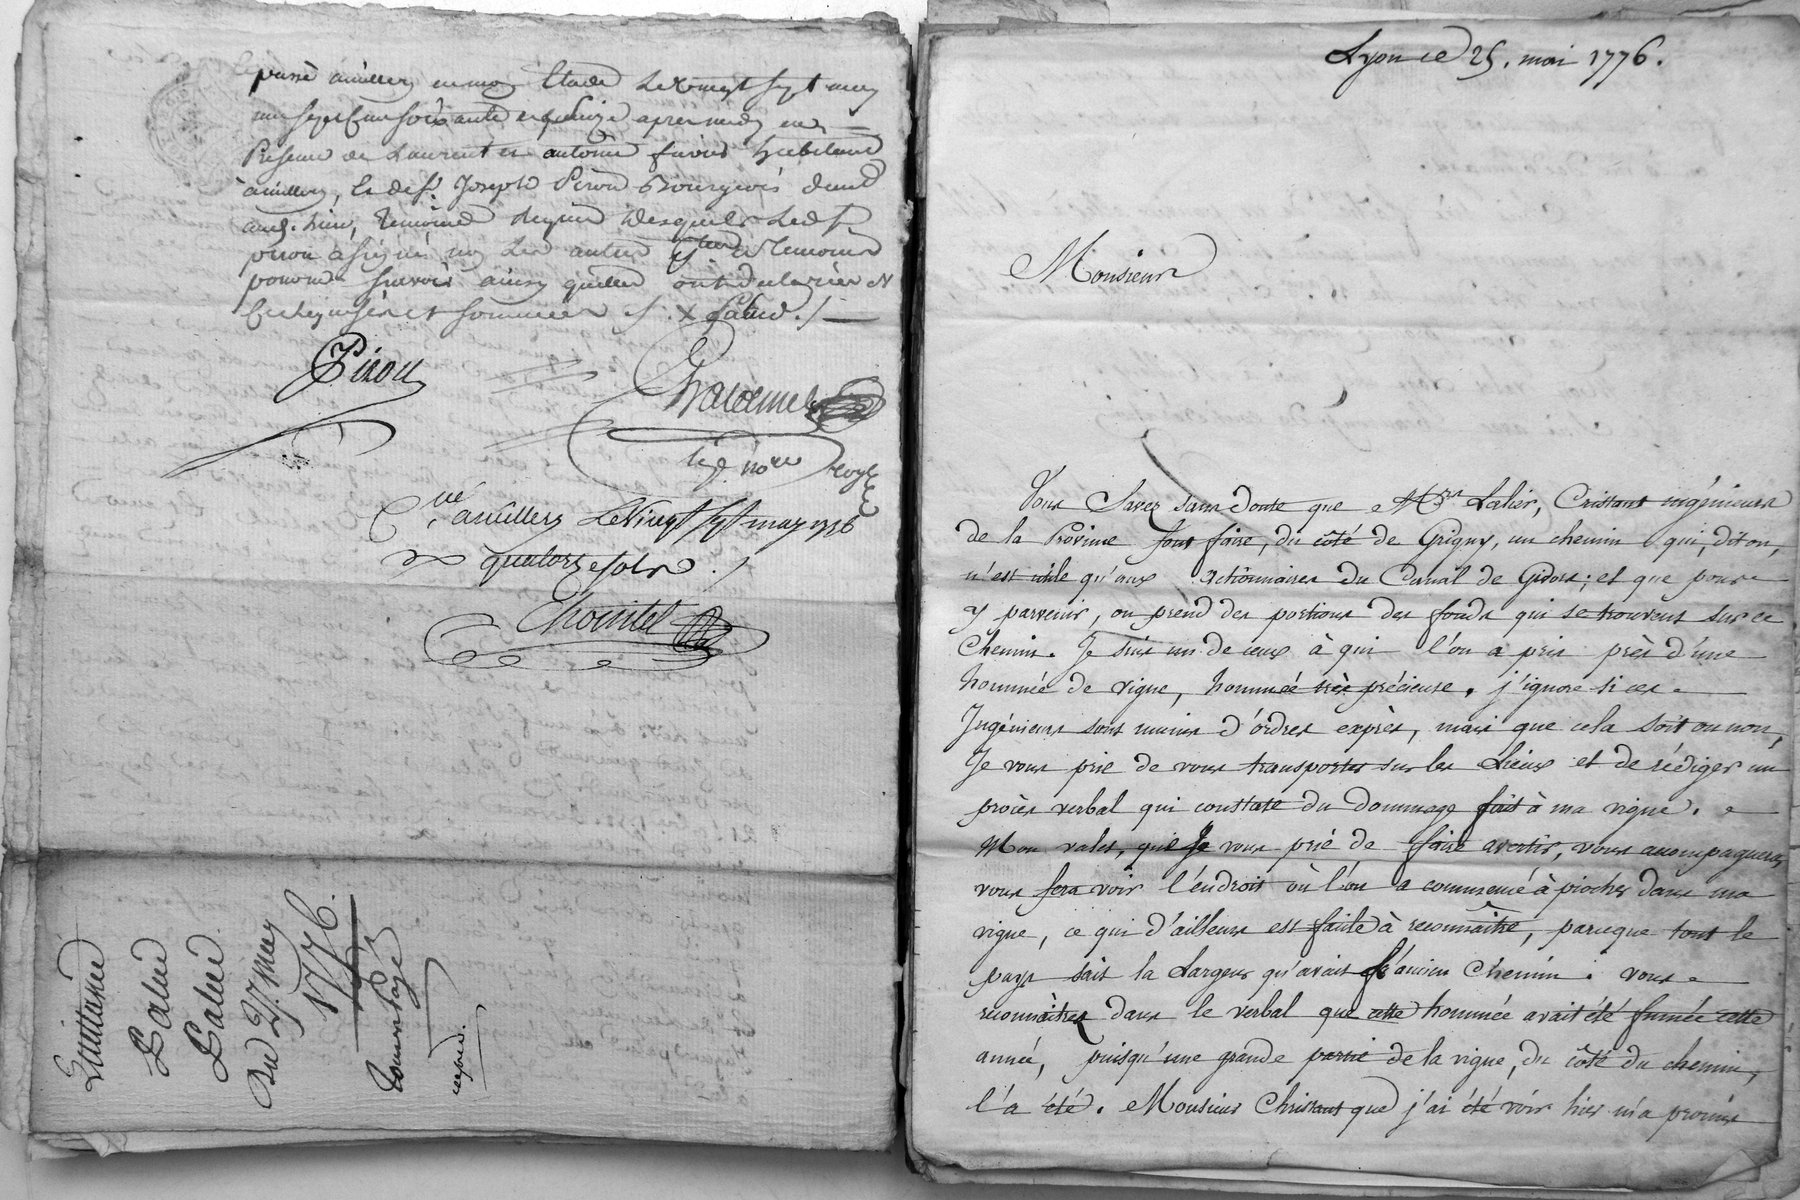 passé a millery en mon Etude Le vingt sept may
mil sept Cent soixante et seize apres midy en
Presence de Laurent et antoine favier habitants
a millery, & de Sr. Joseph Piron Bourgeois dud.
aud. lieu, temoins requis desquels Led. Sr.
piron a signé non Les autres
pour ne scavoir ainsy quils ont declaré de
Ce enquis et sommés
Piron
not.re Royal
a millery Le Vingt sept may 1776
quatorze sols
Quittance
Du 27. May
1776.
expd.
Lyon ce 25. mai 1776.
Monsieur
Vous Savez sans doute que Mrs. Lalier, Cristant ingénieurs
de la Province font faire, du côté de Grigny, un chemin qui, dit on,
n'est utile qu'aux actionnaires du Canal de Givors; et que pour
y parvenir, on prend des portions des fonds qui se trouvent sur ce
Chemin. Je suis un de ceux à qui l'on a pris près d'une
hommée de vigne, hommée très précieuse. j'ignore si ces
Ingénieurs sont munis d'ordres exprès, mais que cela soit ou non,
Je vous prie de vous transporter sur les Lieux et de rédiger un
procès verbal qui constate du dommage fait à ma vigne.
Mon valet, que Je vous prie de faire avertir, vous accompagnera,
vous fera voir l'endroit où l'on a commencé à piocher dans ma
vigne, ce qui d'ailleurs est facile à reconnaître, parceque tout le
pays sait la Largeur qu'avait L'ancien Chemin. vous
reconnaitrez dans le verbal que cette hommée avait été fumée cette
année, puisqu'une grande partie de la vigne, du côté du chemin,
l'a été. Monsieur Christant que j'ai été voir hier m'a promis